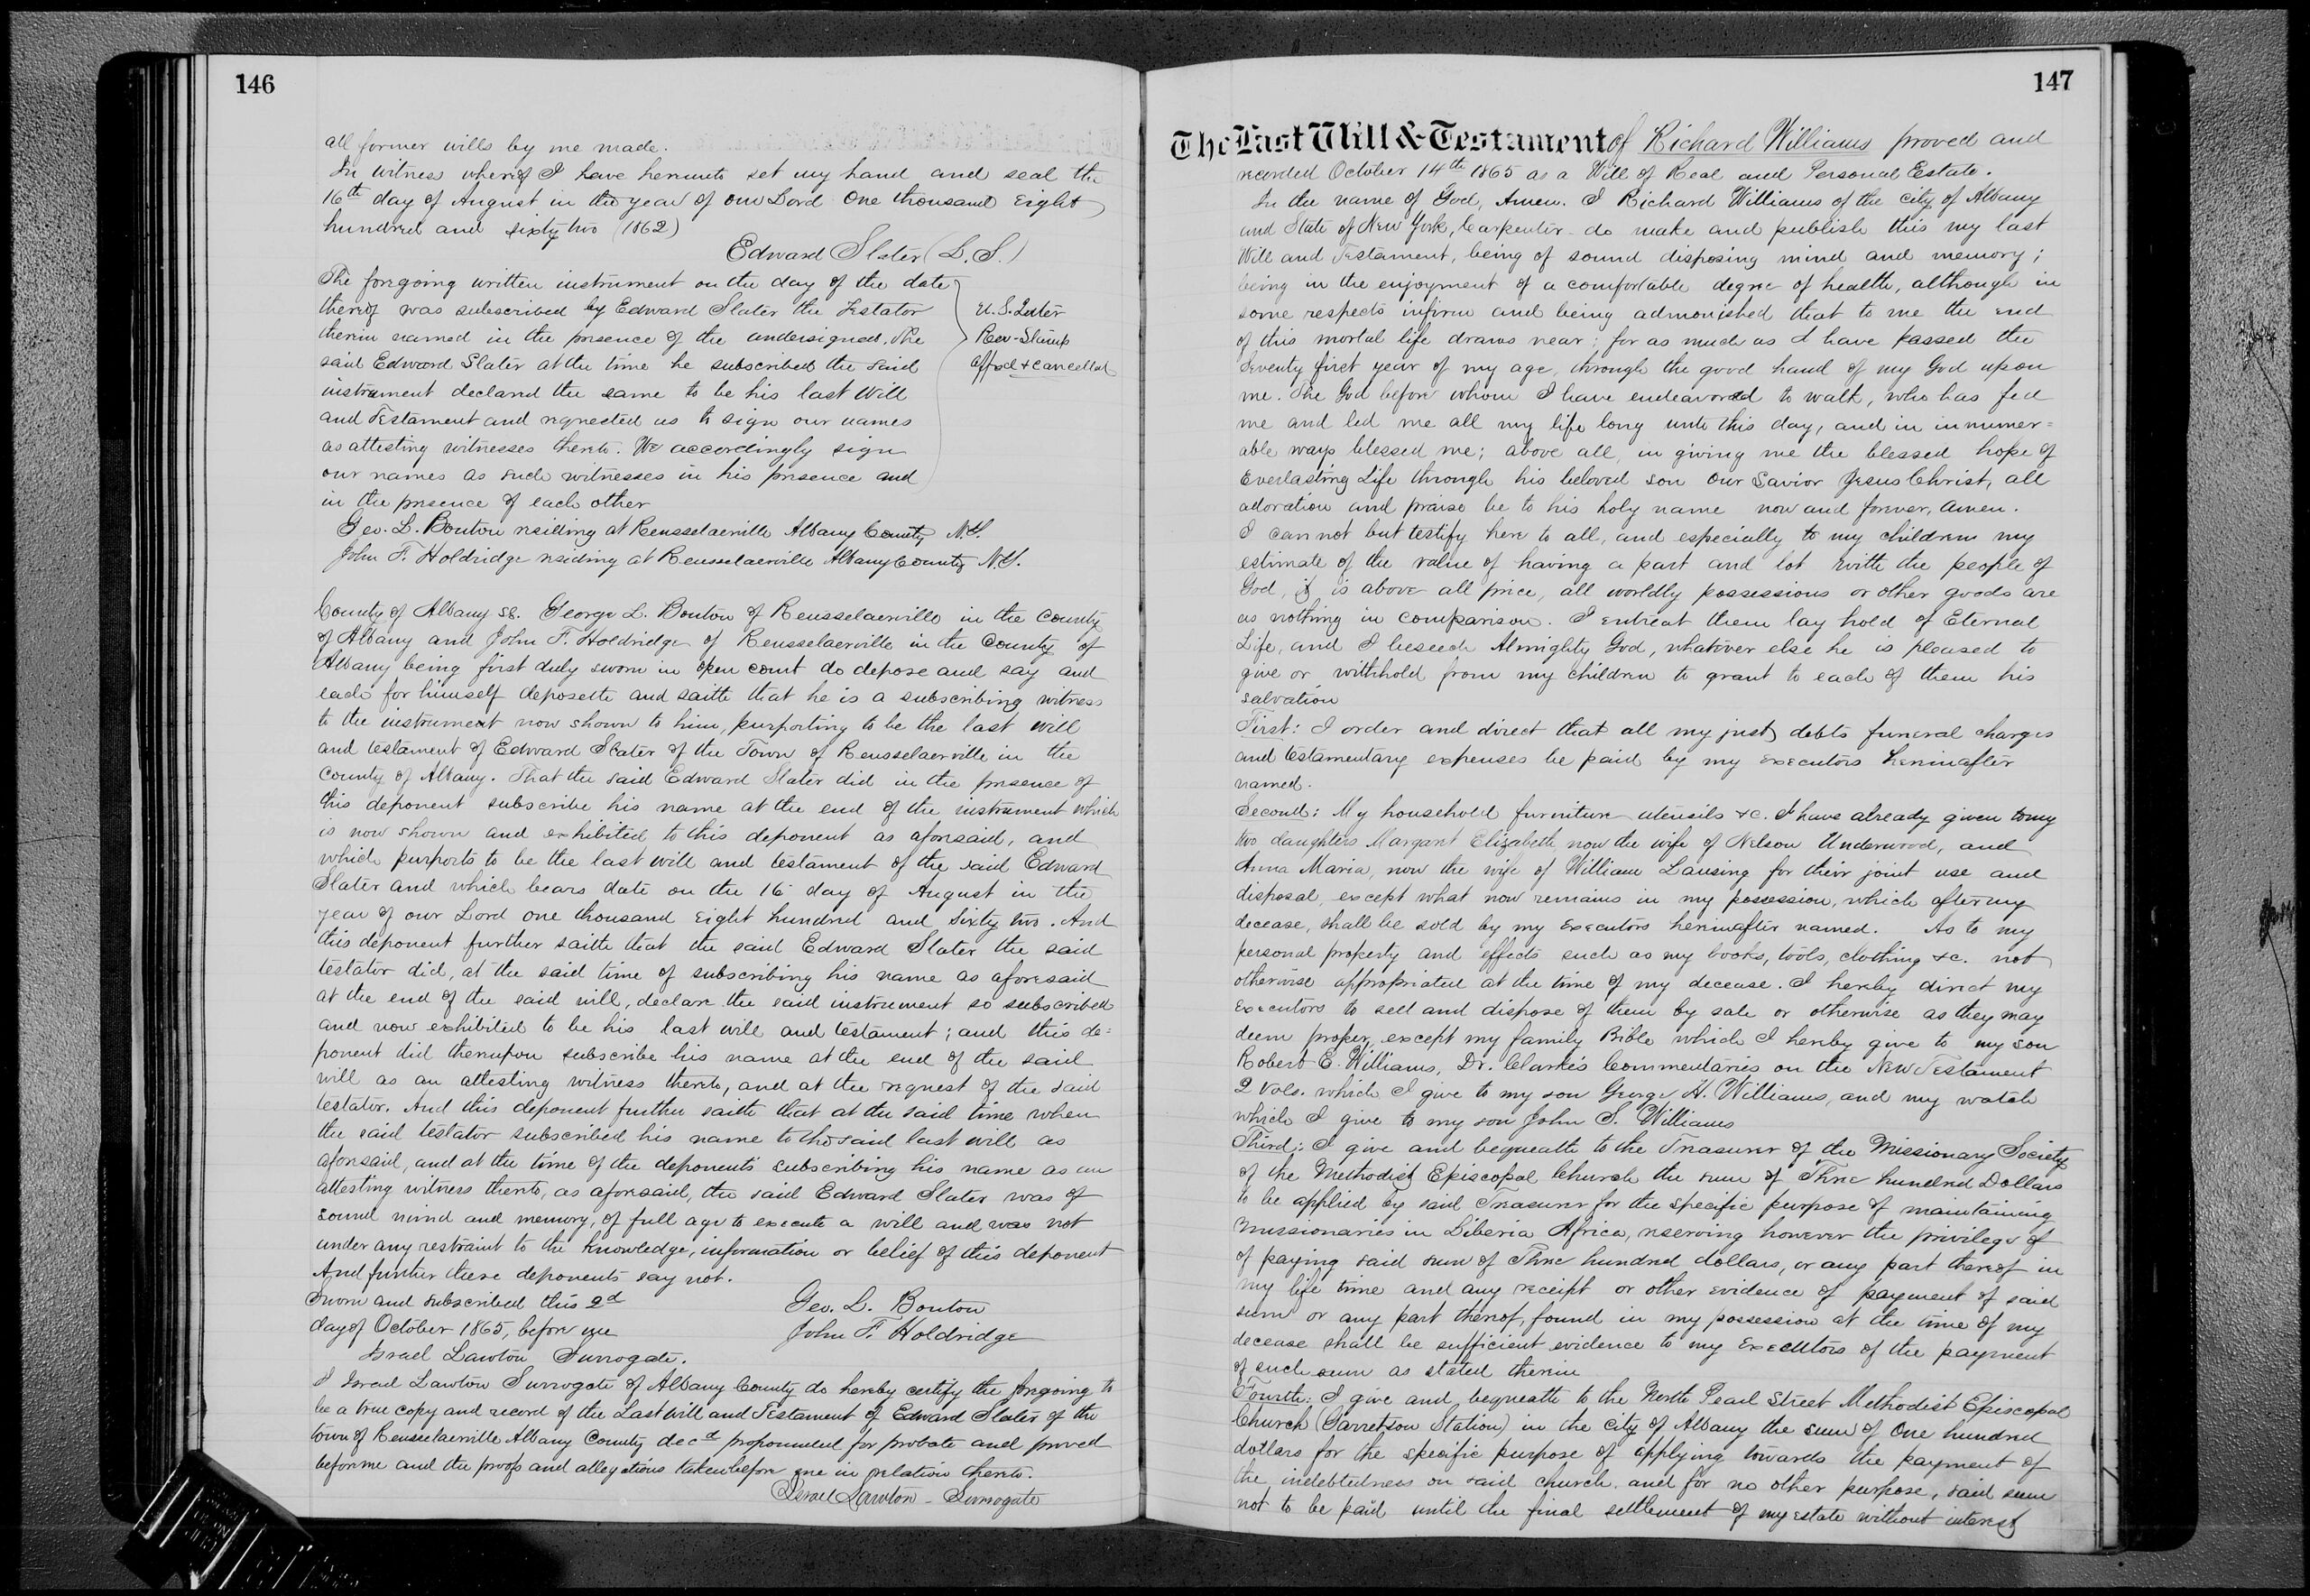 146
all former wills by me made.
In Witness whereof I have hereunto set my hand and seal the
16th day of August in the year of our Lord One thousand Eight
hundred and sixty two (1862)
Edward Slater (L.S.)
The foregoing written instrument on the day of the date
thereof was subscribed by Edward Slater the Testator
therein named in the presence of the undersigned. The
said Edward Slater at the time he subscribed the said
instrument declared the same to be his last Will
and Testament and requested us to sign our names
as attesting witnesses thereto. We accordingly sign
our names as such witnesses in his presence and
in the presence of each other
U.S. Inter
Rev-Stamp
affxd & cancelled
Geo. L. Bouton residing at Rensselaerville Albany County N.Y.
John F. Holdridge residing at Rensselaerville Albany County N.Y.
County of Albany ss. George L. Bouton of Rensselaerville in the County
of Albany and John F. Holdridge of Rensselaerville in the County of
Albany being first duly sworn in open court do depose and say and
each for himself deposeth and saith that he is a subscribing witness
to the instrument now shown to him, purporting to be the last will
and testament of Edward Slater of the Town of Rensselaerville in the
County of Albany. That the said Edward Slater did in the presence of
this deponent subscribe his name at the end of the instrument which
is now shown and exhibited to this deponent as aforesaid, and
which purports to be the last will and testament of the said Edward
Slater and which bears date on the 16 day of August in the
year of our Lord one thousand Eight hundred and Sixty two. And
this deponent further saith that the said Edward Slater the said
testator did, at the said time of subscribing his name as aforesaid
at the end of the said will, declare the said instrument so subscribed
and now exhibited to be his last will and testament; and this de=
ponent did thereupon subscribe his name at the end of the said
will as an attesting witness thereto, and at the request of the said
testator. And this deponent further saith that at the said time when
the said testator subscribed his name to the said last will as
aforesaid, and at the time of the deponents subscribing his name as an
attesting witness thereto, as aforesaid, the said Edward Slater was of
sound mind and memory, of full age to execute a will and was not
under any restraint to the knowledge, information or belief of this deponent
And further these deponents say not.
Sworn and subscribed this 2d
day of October 1865, before me
Israel Lawton Surrogate.
Geo. L. Bouton
John F. Holdridge
I Israel Lawton Surrogate of Albany County do hereby certify the foregoing to
be a true copy and record of the Last Will and Testament of Edward Slater of the
town of Rensselaerville Albany County decd propounded for probate and proved
before me and the proofs and allegations taken before me in relation thereto.
Israel Lawton - Surrogate
147
The Last Will & Testament of Richard Williams proved and
recorded October 14th 1865 as a Will of Real and Personal Estate.
In the name of God, Amen. I Richard Williams of the City of Albany
and State of New York, Carpenter do make and publish this my last
Will and Testament, being of sound disposing mind and memory;
being in the enjoyment of a comfortable degree of health, although in
some respects infirm and being admonished that to me the end
of this mortal life draws near; for as much as I have passed the
Seventy first year of my age, through the good hand of my God upon
me. The God before whom I have endeavored to walk, who has fed
me and led me all my life long unto this day, and in innumer=
able ways blessed me; above all, in giving me the blessed hope of
Everlasting Life through his beloved son Our Savior Jesus Christ, all
adoration and praise be to his holy name now and forever, Amen.
I cannot but testify here to all, and especially to my children my
estimate of the value of having a part and lot with the people of
God, it is above all price, all worldly possessions or other goods are
as nothing in comparison. I entreat them lay hold of Eternal
Life, and I beseech Almighty God, whatever else he is pleased to
give or withhold from my children to grant to each of them his
salvation
First: I order and direct that all my just debts funeral charges
and testamentary expenses be paid by my executors hereinafter
named.
Second: My household furniture utensils &c. I have already given to my
two daughters Margaret Elizabeth, now the wife of Nelson Underwood, and
Anna Maria, now the wife of William Lansing for their joint use and
disposal, except what now remains in my possession, which after my
decease, shall be sold by my Executors hereinafter named. As to my
personal property and effects such as my books, tools, clothing &c. not
otherwise appropriated at the time of my decease. I hereby direct my
Executors to sell and dispose of them by sale or otherwise as they may
deem proper, except my family Bible which I hereby give to my son
Robert E. Williams, Dr. Clarke's Commentaries on the New Testament
2 Vols. which I give to my son George H. Williams, and my watch
which I give to my son John S. Williams
Third: I give and bequeath to the Treasurer of the Missionary Society
of the Methodist Episcopal Church the sum of Three hundred Dollars
to be applied by said Treasurer for the specific purpose of maintaining
Missionaries in Liberia Africa, reserving however the privilege of
of paying said sum of Three hundred dollars, or any part thereof in
my life time and any receipt or other evidence of payment of said
sum or any part thereof, found in my possession at the time of my
decease shall be sufficient evidence to my Executors of the payment
of such sum as stated therein
Fourth: I give and bequeath to the North Pearl Street Methodist Episcopal
Church (Garretson Station) in the City of Albany the sum of One hundred
dollars for the specific purpose of applying towards the payment of
the indebtedness on said church, and for no other purpose, said sum
not to be paid until the final settlement of my estate without interest